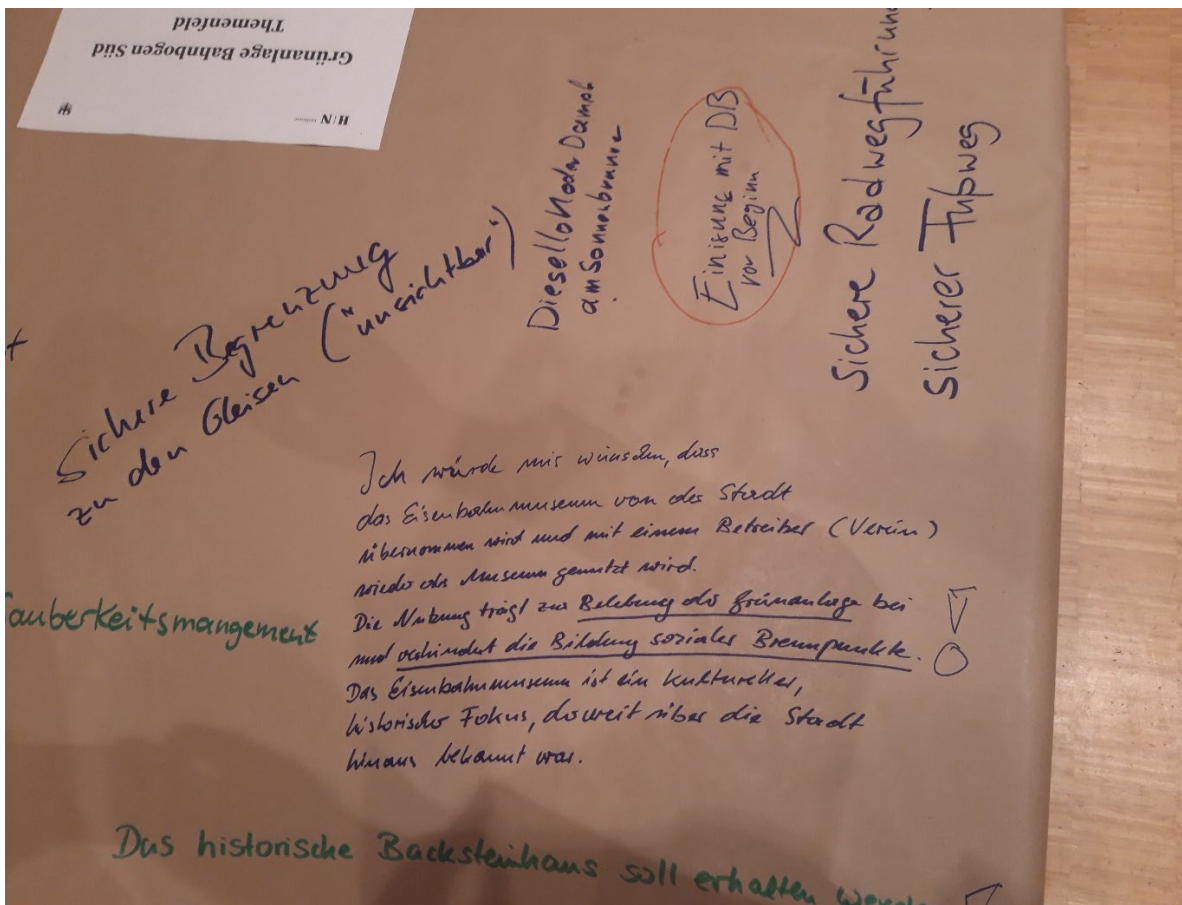 Themenfeld
Grünanlage Bahnbogen Süd
H|N
Sichere Begrenzung
zu den Gleisen ("unsichtbar")
Diesellok oder Dampf
am Sonnenbrunnen
Einigung mit DB
vor Beginn
Sichere Radwegführung
Sicherer Fußweg
Ich würde mir wünschen, dass
das Eisenbahnmuseum von der Stadt
übernommen wird und mit einem Betreiber (Verein)
wieder als Museum genutzt wird.
Die Nutzung trägt zur Belebung der Grünanlage bei
und verhindert die Bildung sozialer Brennpunkte. !
Das Eisenbahnmuseum ist ein kultureller,
historischer Fokus, der weit über die Stadt
hinaus bekannt war.
auberkeitsmangement
Das historische Backsteinhaus soll erhalten werde